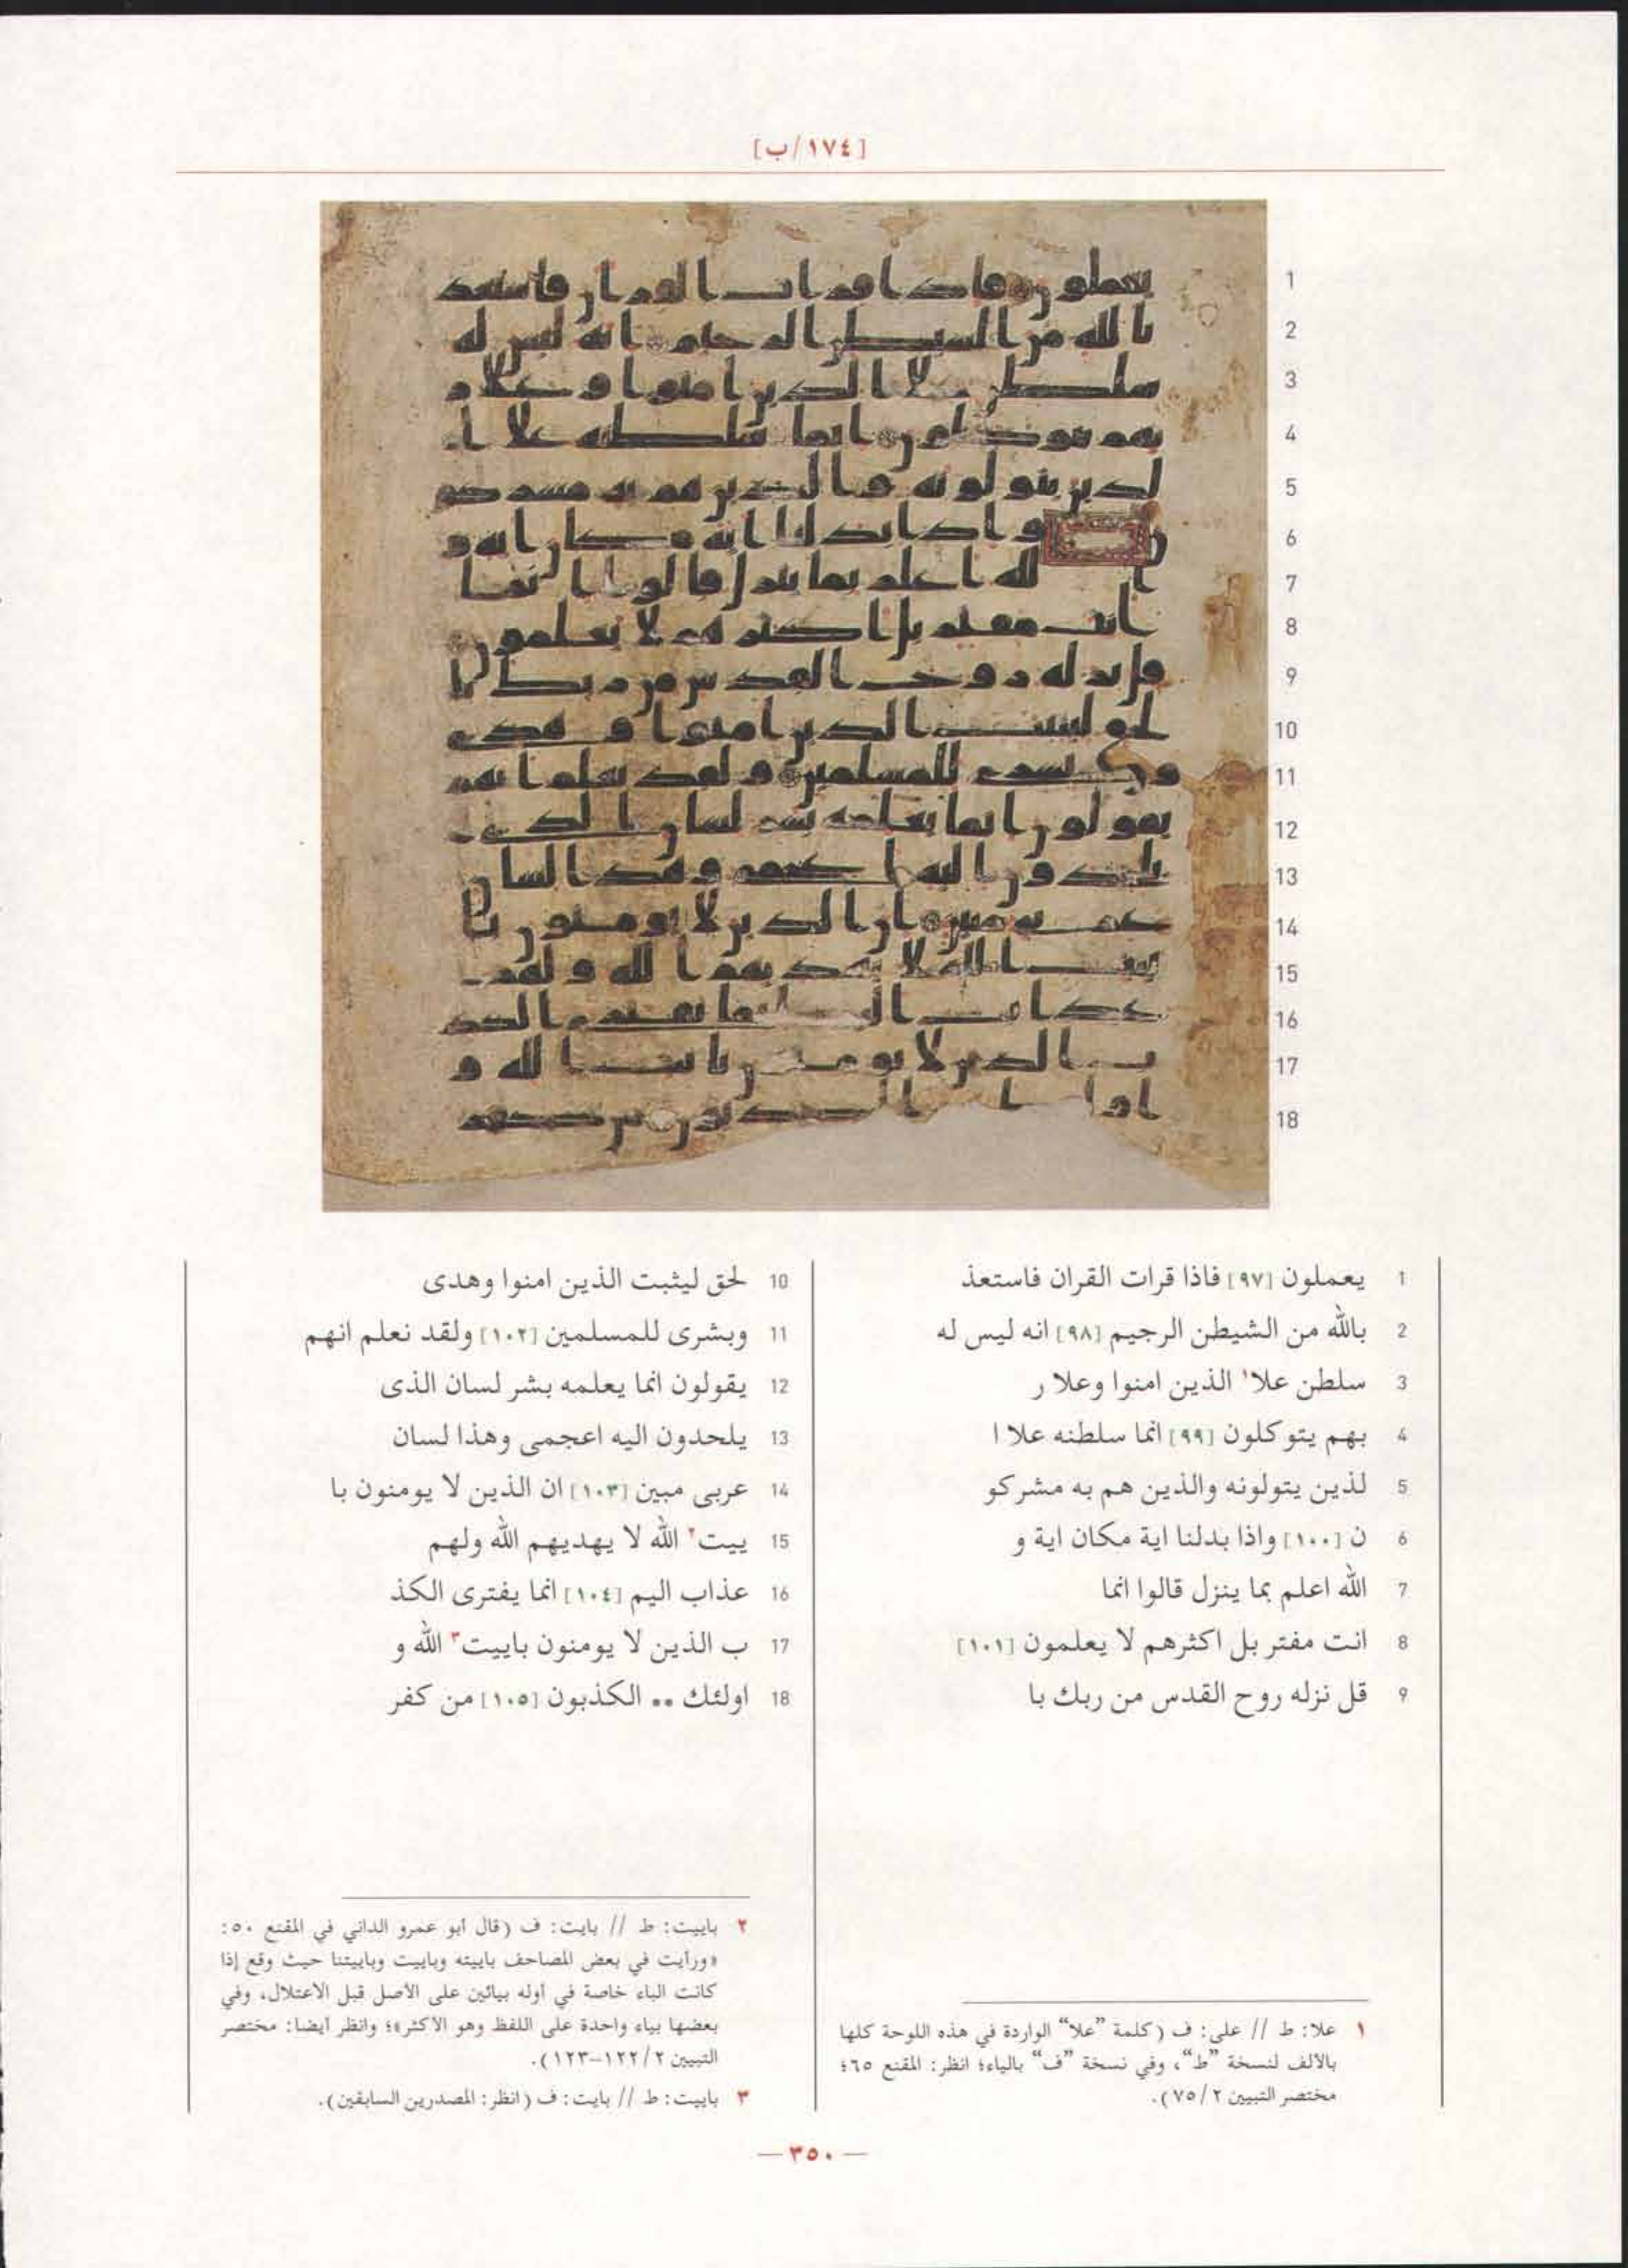 [١٧٤/ب]
1 يعملون [٩٧] فاذا قرات القران فاستعذ
2 بالله من الشيطن الرجيم [٩٨] انه ليس له
3 سلطن علا١ الذين امنوا وعلا ر
4 بهم يتوكلون [٩٩] انما سلطنه علا ا
5 لذين يتولونه والذين هم به مشركو
6 ن [١٠٠] واذا بدلنا اية مكان اية و
7 الله اعلم بما ينزل قالوا انما
8 انت مفتر بل اكثرهم لا يعلمون [١٠١]
9 قل نزله روح القدس من ربك با
10 لحق ليثبت الذين امنوا وهدى
11 وبشرى للمسلمين [١٠٢] ولقد نعلم انهم
12 يقولون انما يعلمه بشر لسان الذى
13 يلحدون اليه اعجمى وهذا لسان
14 عربى مبين [١٠٣] ان الذين لا يومنون با
15 ييت٢ الله لا يهديهم الله ولهم
16 عذاب اليم [١٠٤] انما يفترى الكذ
17 ب الذين لا يومنون باييت٣ الله و
18 اولئك .. الكذبون [١٠٥] من كفر
١ علا: ط // على: ف (كلمة "علا" الواردة في هذه اللوحة كلها
بالألف لنسخة "ط"، وفي نسخة "ف" بالياء؛ انظر: المقنع ٦٥؛
مختصر التبيين ٢/٧٥).
٢ باييت: ط // بايت: ف (قال أبو عمرو الداني في المقنع ٥٠:
«ورأيت في بعض المصاحف باييته وباييت وباييتنا حيث وقع إذا
كانت الباء خاصة في أوله بيائين على الأصل قبل الاعتلال، وفي
بعضها بياء واحدة على اللفظ وهو الأكثر»؛ وانظر أيضا: مختصر
التبيين ٢/١٢٢-١٢٣).
٣ باييت: ط // بايت: ف (انظر: المصدرين السابقين).
— ٣٥٠ —